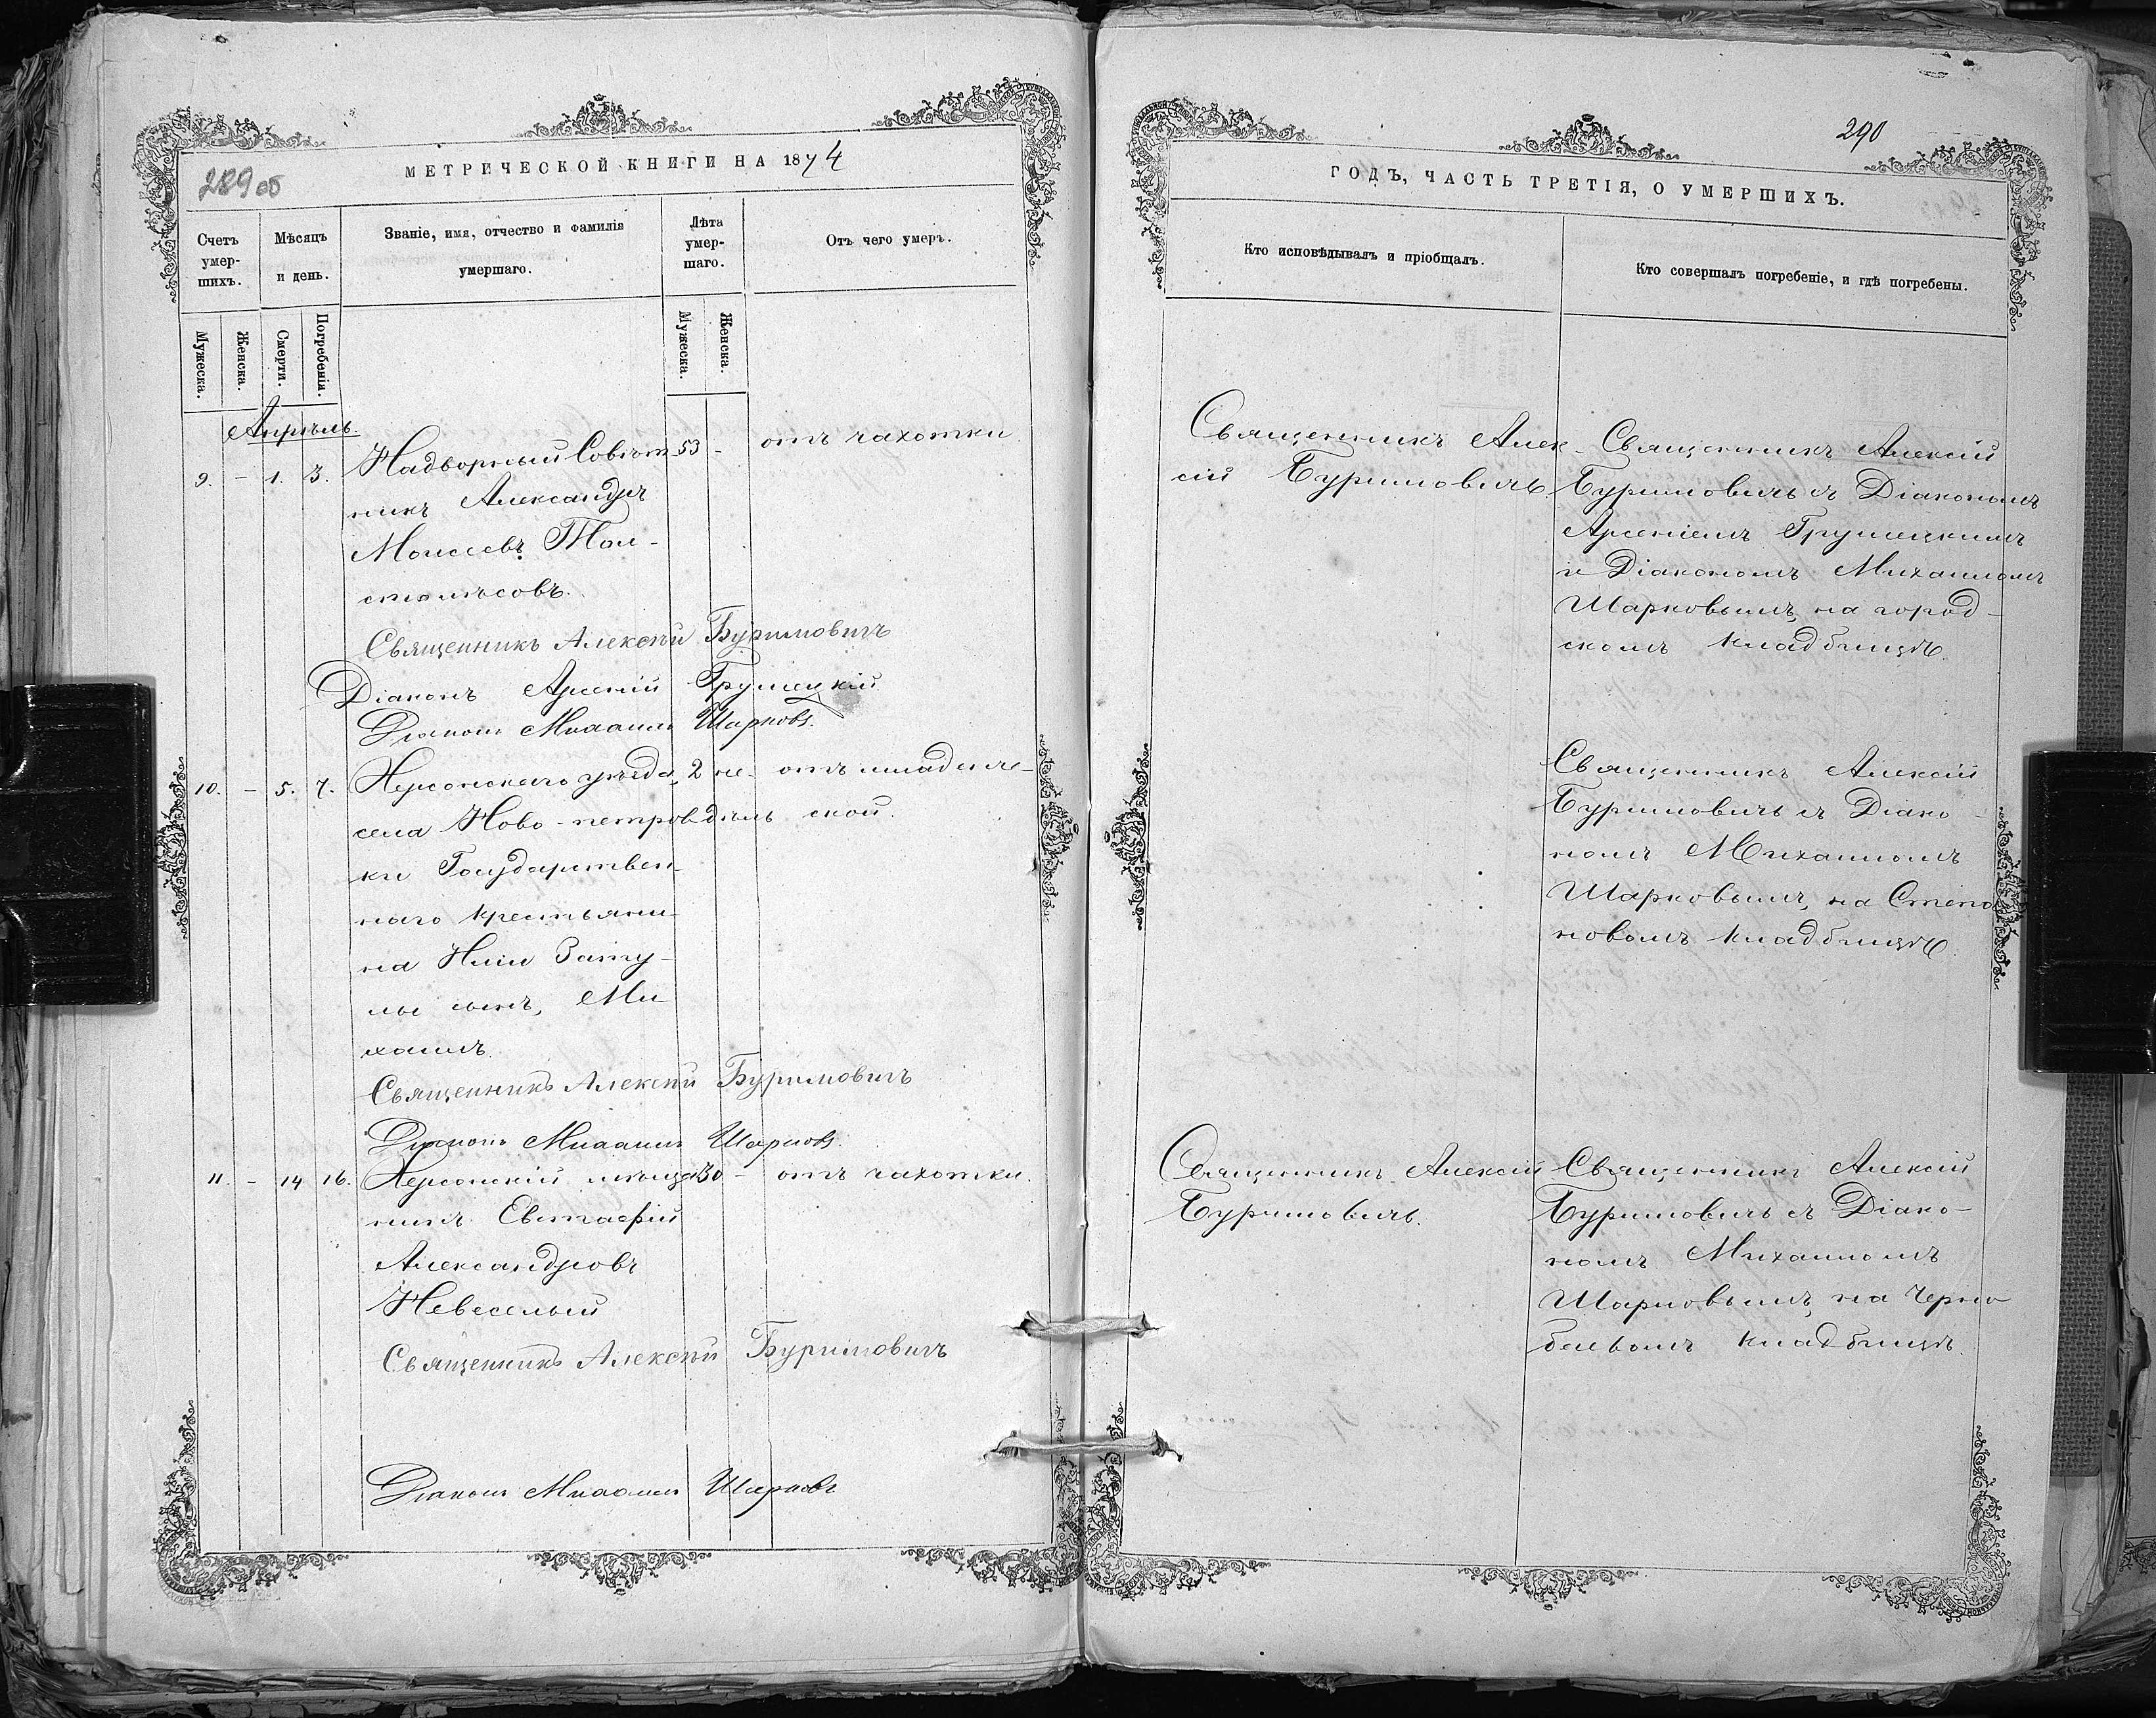 289 об
МЕТРИЧЕСКОЙ КНИГИ НА 1874
Счетъ умер- шихъ.
Мѣсяцъ и день.
Званіе, имя, отчество и фамилія умершаго.
Лѣта умер- шаго.
Отъ чего умеръ.
Мужеска.
Женска.
Смерти.
Погребенія.
Мужеска.
Женска.
Апрѣль.
9. - 1. 3. Надворный Совѣт- 53 - отъ чахотки.
никъ Александръ
Моисеевъ Тол-
столѣсовъ.
Священникъ Алексѣй Буримовичъ
Діаконъ Арсеній Грушецкій
Діаконъ Михаилъ Шарковъ.
10. - 5. 7. Херсонскаго уѣзда, 2 не- отъ младенче-
села Ново-петров- дѣль ской.
ки Государствен-
наго крестьяни-
на Иліи Зату-
лы сынъ, Ми-
хаилъ.
Священникъ Алексѣй Буримовичъ
Діаконъ Михаилъ Шарковъ.
11. - 14 16. Херсонскій мѣща- 30 - отъ чахотки.
нинъ Евстафій
Александровъ
Невеселый
Священникъ Алексѣй Буримовичъ
Діаконъ Михаилъ Шарковъ
290
ГОДЪ, ЧАСТЬ ТРЕТІЯ, О УМЕРШИХЪ.
Кто исповѣдывалъ и пріобщалъ.
Кто совершалъ погребеніе, и гдѣ погребены.
Священникъ Алек-
сій Буримовичъ
Священникъ Алексій
Буримовичъ съ Діакономъ
Арсеніемъ Грушецкимъ
и Діакономъ Михаиломъ
Шарковымъ, на город-
скомъ кладбищѣ.
Священникъ Алексій
Буримовичъ съ Діако-
номъ Михаиломъ
Шарковымъ, на Степа-
новомъ кладбищѣ.
Священникъ Алексій
Буримовичъ.
Священникъ Алексій
Буримовичъ съ Діако-
номъ Михаиломъ
Шарковымъ, на Черно
баевомъ кладбищѣ.